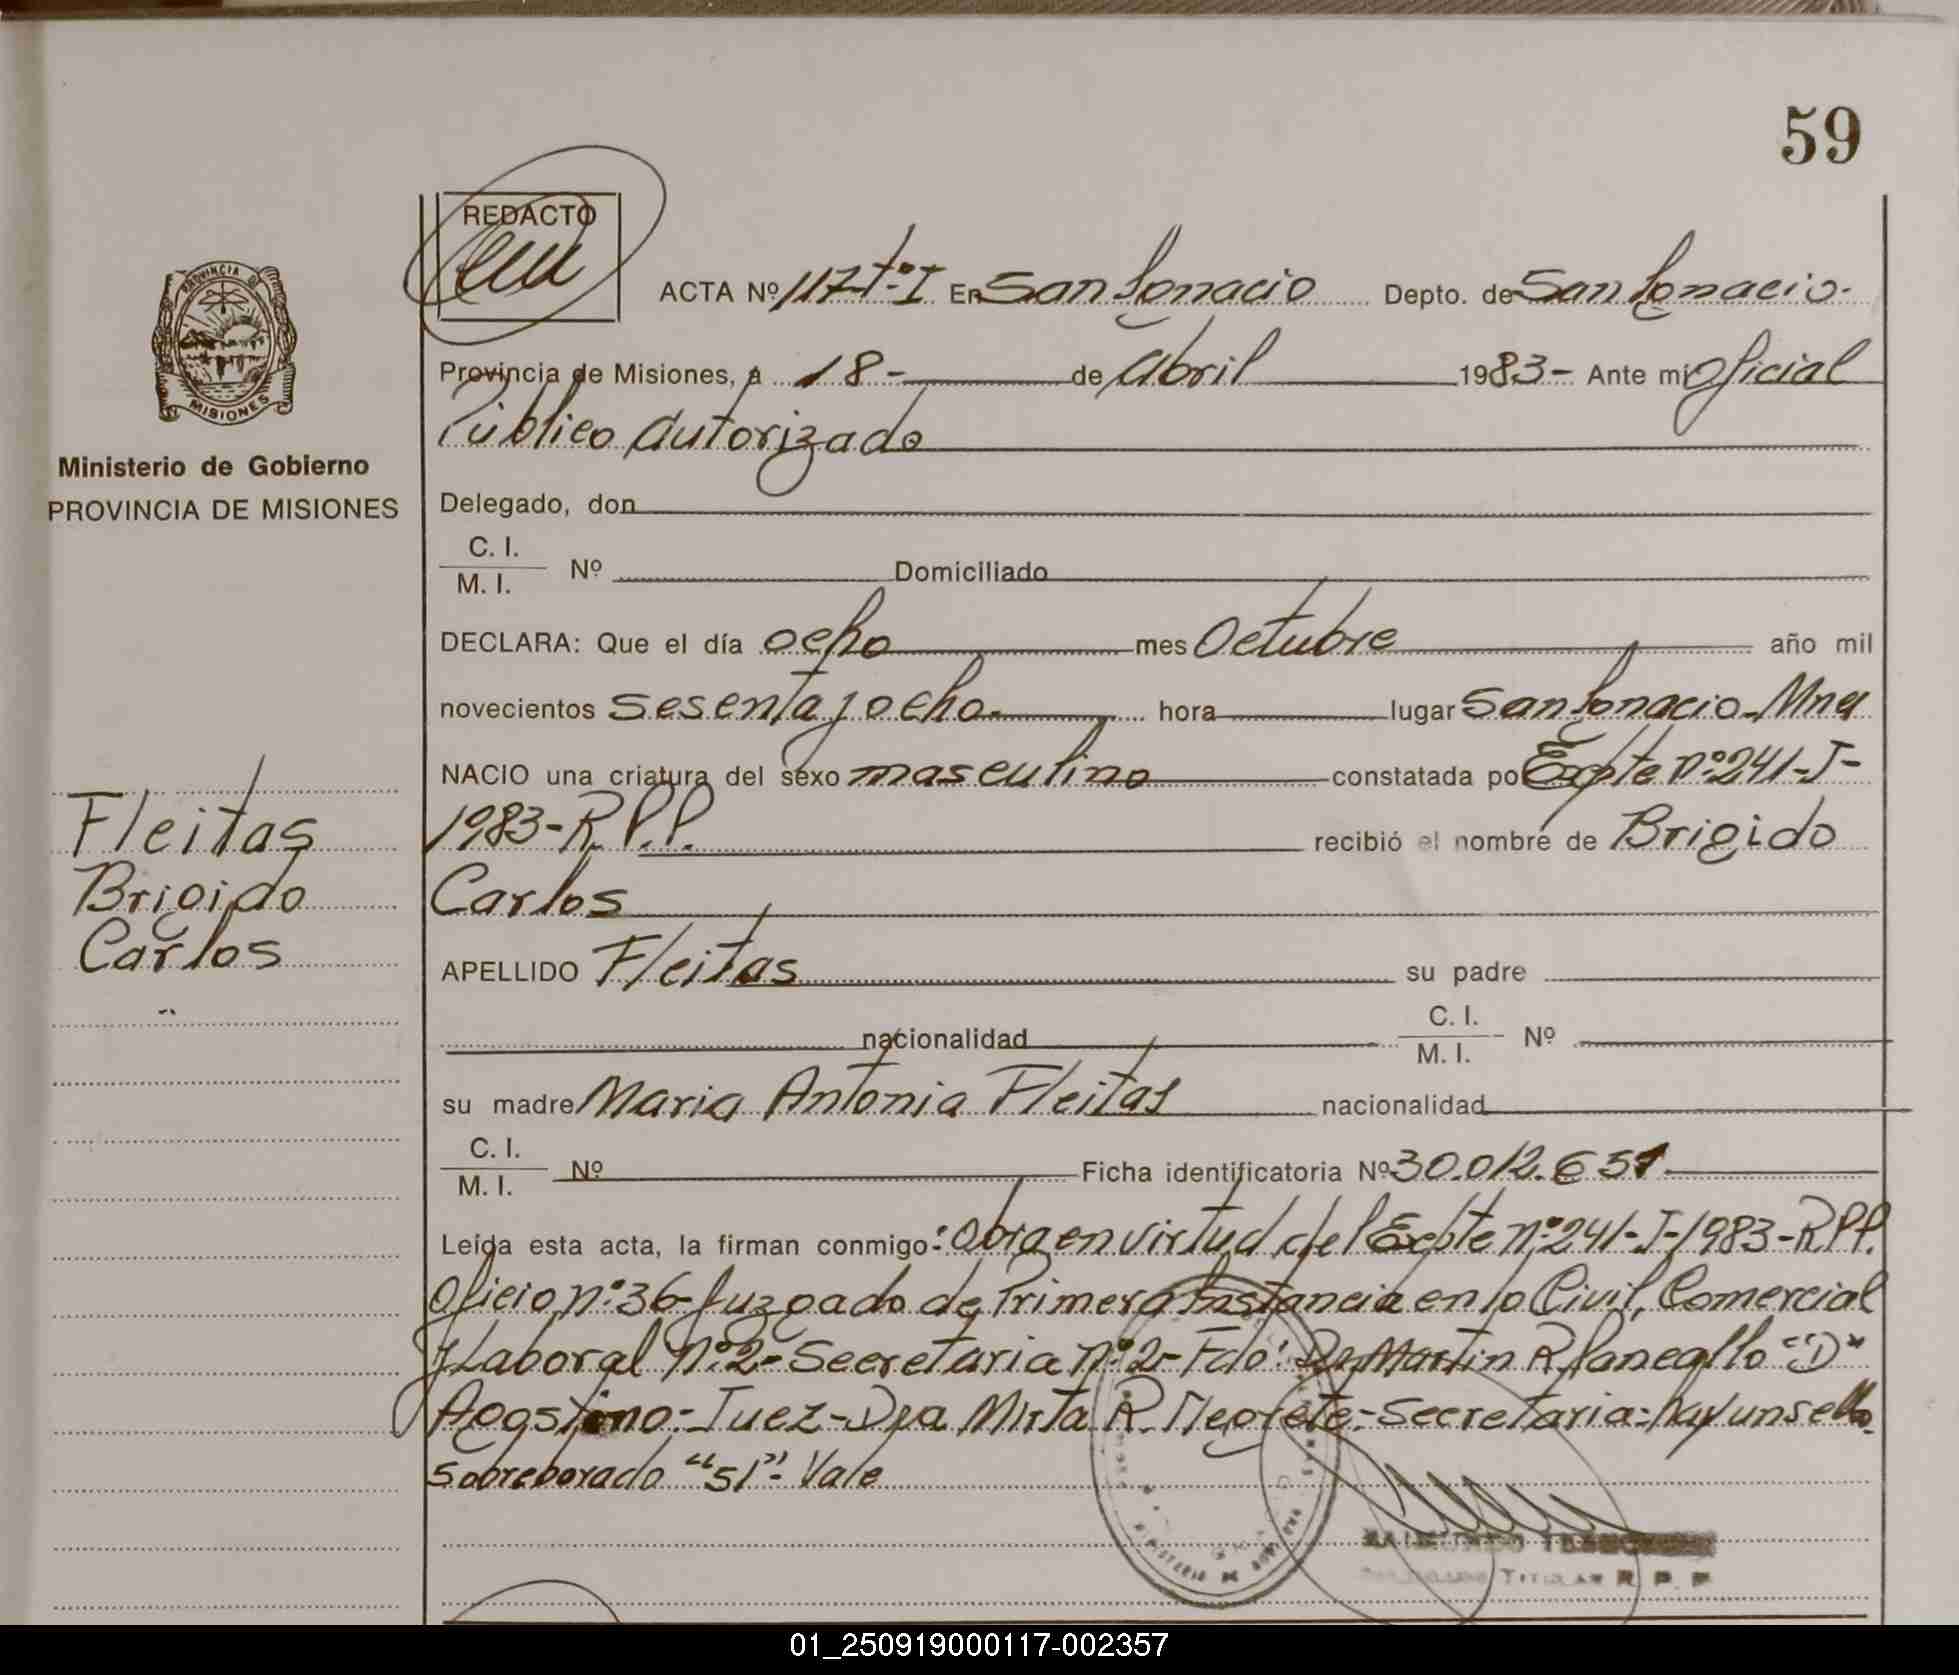 59
REDACTO
ACTA Nº 117 tº I En San Ignacio Depto. de San Ignacio.
Provincia de Misiones, a 18- de Abril 1983- Ante mi Oficial
Público Autorizado
PROVINCIA DE
MISIONES
Ministerio de Gobierno
PROVINCIA DE MISIONES
Delegado, don
C. I.
M. I. Nº Domiciliado
DECLARA: Que el día ocho mes Octubre año mil
novecientos sesenta y ocho.- hora lugar San Ignacio-Mnes
NACIO una criatura del sexo masculino constatada po Expte nº 241-J-
1983-R.P.P. recibió el nombre de Brigido
Carlos
Fleitas
Brigido
Carlos
APELLIDO Fleitas su padre
nacionalidad C. I.
M. I. Nº
su madre Maria Antonia Fleitas nacionalidad
C. I.
M. I. Nº Ficha identificatoria Nº 30.012.651
Leída esta acta, la firman conmigo: Obra en virtud del Expte nº 241-J-1983-R.P.P.
Oficio nº 36-Juzgado de Primera Instancia en lo Civil, Comercial
y Laboral nº 2-Secretaria nº 2-Fdo: Dr Martin R "D"
Agostino-Juez-Dra Mirta R. Negrete-Secretaria: hay un sello.
Sobreborado "51"- Vale
TITULAR R P P
01_250919000117-002357